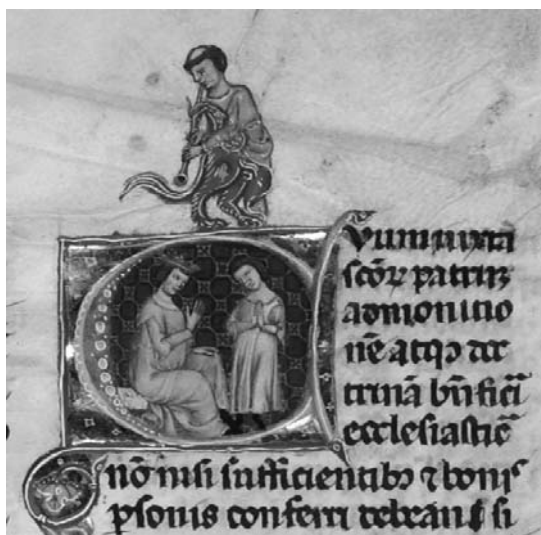 CUm iuxta
scõꝝ patrũ
admonitio
nẽ atqꝫ doc
trinã bñficia
ecclesiastica
nõ nisi sufficientibꝫ ⁊ bonis
ꝑsonis conferri debeant si